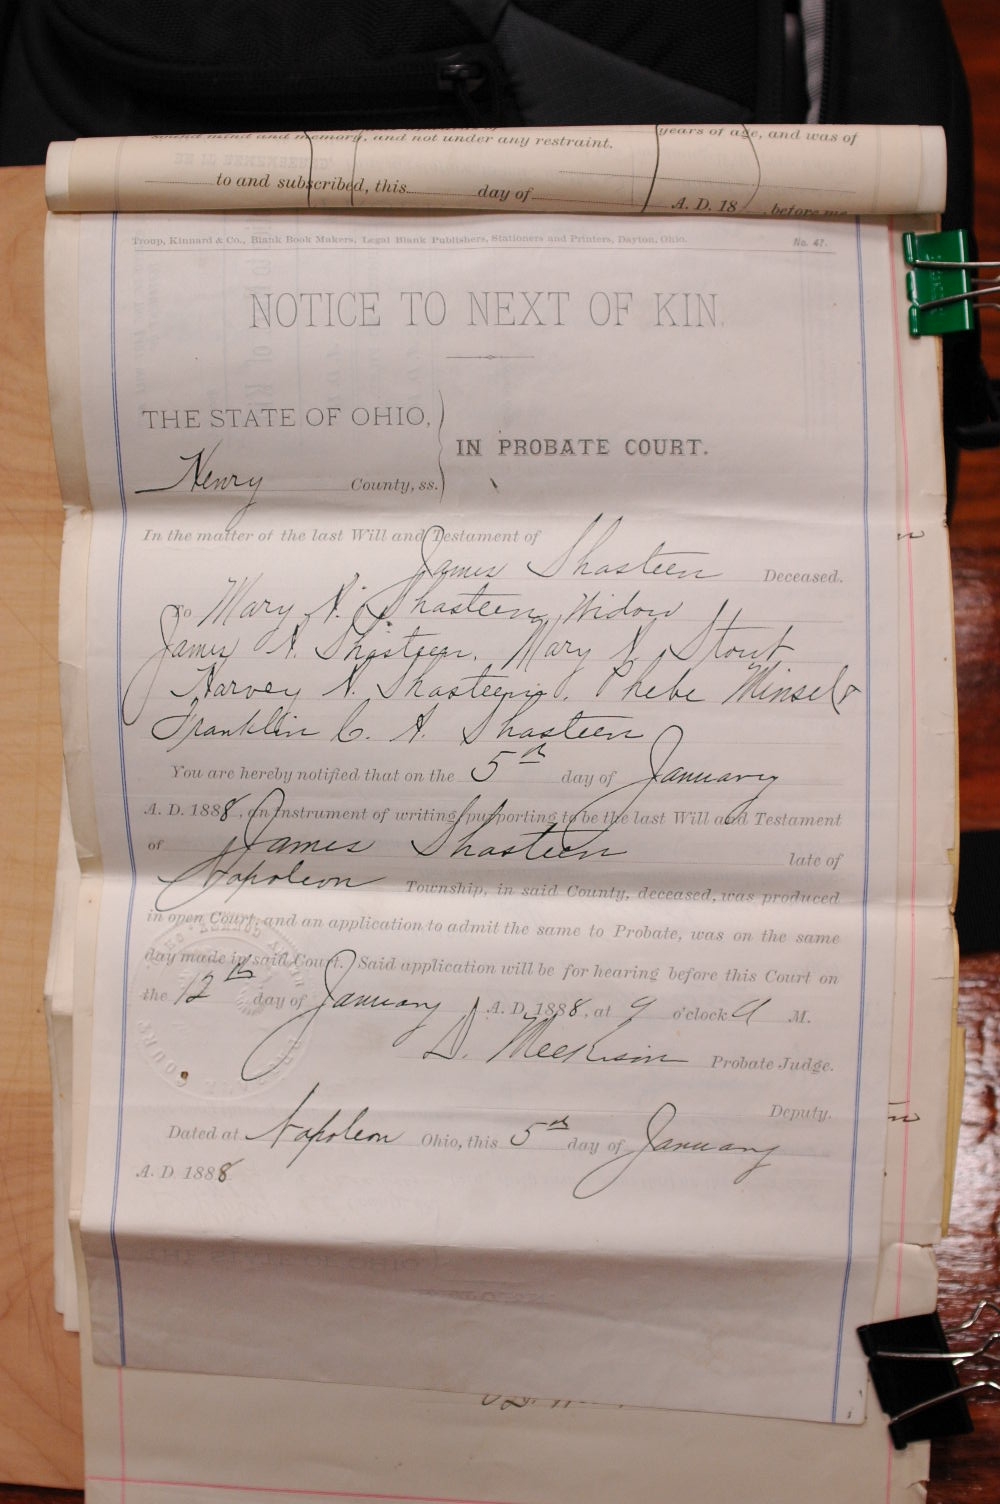 sound mind and memory, and not under any restraint.
years of age, and was of
to and subscribed, this day of A. D. 18 before me
Troup, Kinnard & Co., Blank Book Makers, Legal Blank Publishers, Stationers and Printers, Dayton, Ohio. No. 47.
NOTICE TO NEXT OF KIN.
THE STATE OF OHIO,
IN PROBATE COURT.
Henry County, ss.
In the matter of the last Will and Testament of
James Shasteen Deceased.
To Mary N. Shasteen, Widow
James A. Shasteen, Mary N. Stout
Harvey N. Shasteen, Phebe Minsel &
Franklin C. A. Shasteen
You are hereby notified that on the 5th day of January
A. D. 1888, an instrument of writing purporting to be the last Will and Testament
of James Shasteen late of
Napoleon Township, in said County, deceased, was produced
in open Court, and an application to admit the same to Probate, was on the same
day made in said Court. Said application will be for hearing before this Court on
the 12th day of January A. D. 1888, at 9 o'clock A M.
D. Meekison Probate Judge.
Deputy.
Dated at Napoleon Ohio, this 5th day of January
A. D. 1888